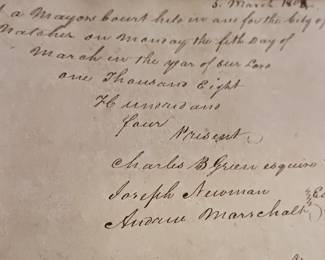 5. March 1804
a Mayors Court held in and for the City of
Natchez on Monday the fifth Day of
March in the year of our Lord
one Thousand Eight
Hundred and
four
Present
Charles B Green esquire
Joseph Newman
Andrew Marschalk